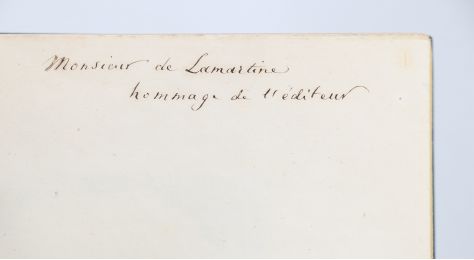 Monsieur de Lamartine
hommage de l'éditeur